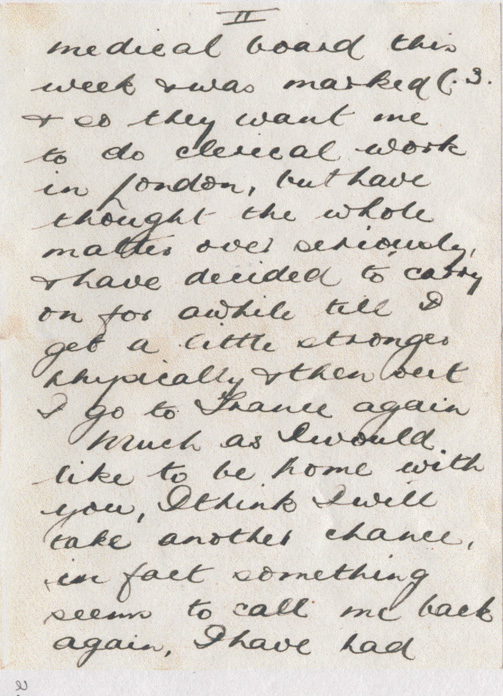 II
medical board this
week & was marked C.3.
& so they want me
to do clerical work
in London, but have
thought the whole
matter over seriously,
& have decided to carry
on for awhile till I
get a little stronger
physically & then out
I go to France again
Much as I would
like to be home with
you, I think I will
take another chance,
in fact something
seems to call me back
again, I have had